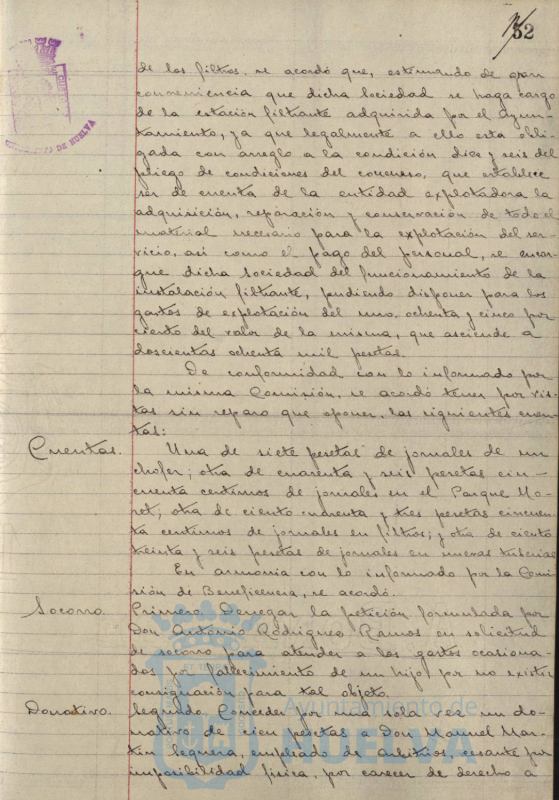 52
de los filtros, se acordó que, estimando de gran
conveniencia que dicha Sociedad se haga cargo
de la estación filtrante adquirida por el Ayun-
tamiento, ya que legalmente a ello esta obli-
gada con arreglo a la condición diez y seis del
pliego de condiciones del concurso, que establece
ser de cuenta de la entidad explotadora la
adquisición, reparación y conservación de todo el
material necesario para la explotación del ser-
vicio, asi como el pago del personal, se encar-
gue dicha Sociedad del funcionamiento de la
instalación filtrante, pudiendo disponer para los
gastos de explotación del uno ochenta y cinco por
ciento del valor de la misma, que asciende a
doscientas ochenta mil pesetas.
De conformidad con lo informado por
la misma Comisión, se acordó tener por vis-
tas sin reparo que oponer, las siguientes cuen-
tas:
Cuentas. Una de siete pesetas de jornales de un
chofer; otra de cuarenta y seis pesetas cin-
cuenta centimos de jornales en el Parque Mo-
ret; otra de ciento cuarenta y tres pesetas cincuen-
ta centimos de jornales en filtros; y otra de ciento
treinta y seis pesetas de jornales en nuevas tuberias
En armonia con lo informado por la Comi-
sión de Beneficencia, se acordó.
Socorro. Primero. Denegar la petición formulada por
Don Antonio Rodriguez Ramos en solicitud
de socorro para atender a los gastos ocasiona-
dos por fallecimiento de un hijo por no existir
consignación para tal objeto.
Donativo. Segundo. Conceder por una sola vez un do-
nativo de cien pesetas a Don Manuel Mar-
tin Seguera, empleado de Arbitrios, cesante por
imposibilidad fisica, por carecer de derecho a
DE HUELVA
Ayuntamiento de
HUELVA